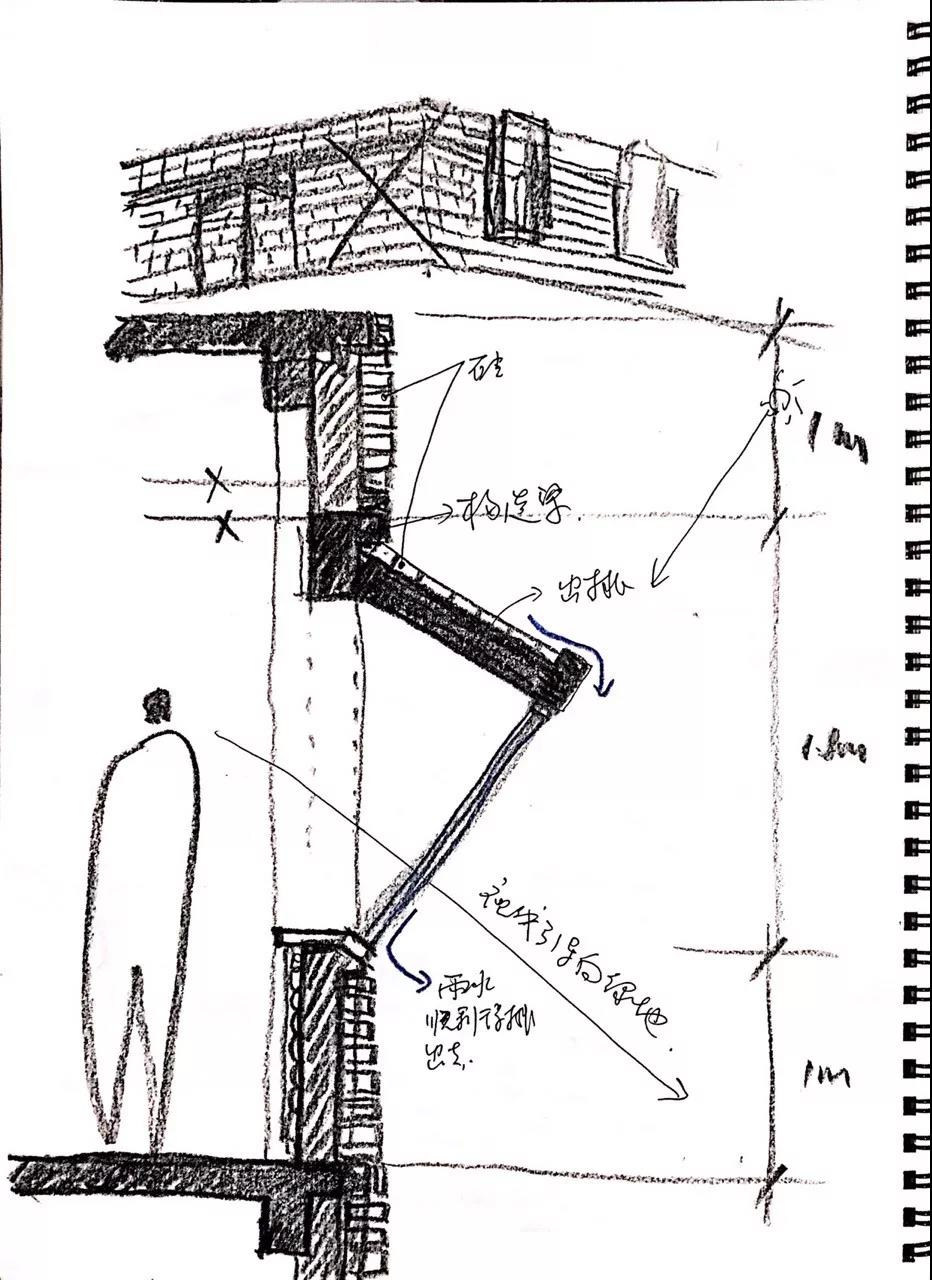 砖
1m
构造梁.
出挑
1.8m
视线引导向绿地.
雨水
顺利得排
出去.
1m